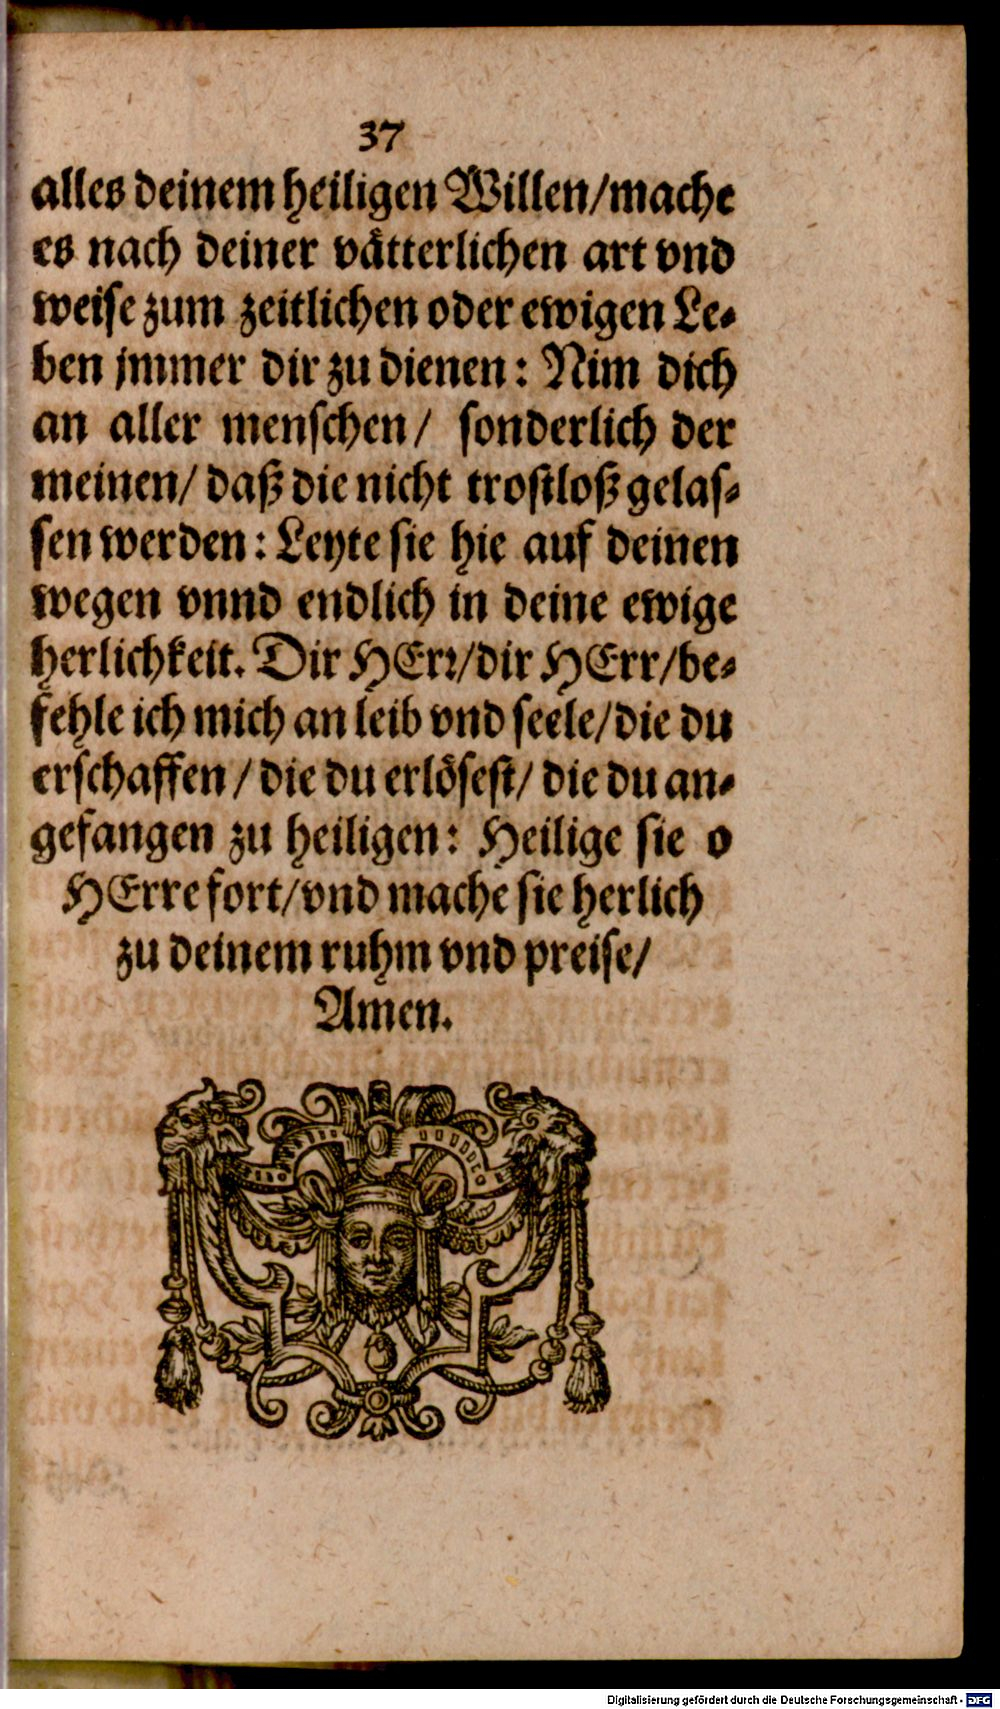 37
alles deinem heiligen Willen/mache
es nach deiner vätterlichen art vnd
weise zum zeitlichen oder ewigen Le-
ben jmmer dir zu dienen: Nim dich
an aller menschen/ sonderlich der
meinen/ daß die nicht trostloß gelas-
sen werden: Leyte sie hie auf deinen
wegen vnnd endlich in deine ewige
herlichkeit. Dir HErr/dir HErr/be-
fehle ich mich an leib vnd seele/die du
erschaffen/ die du erlösest/ die du an-
gefangen zu heiligen: Heilige sie o
HErre fort/vnd mache sie herlich
zu deinem ruhm vnd preise/
Amen.
Digitalisierung gefördert durch die Deutsche Forschungsgemeinschaft - DFG